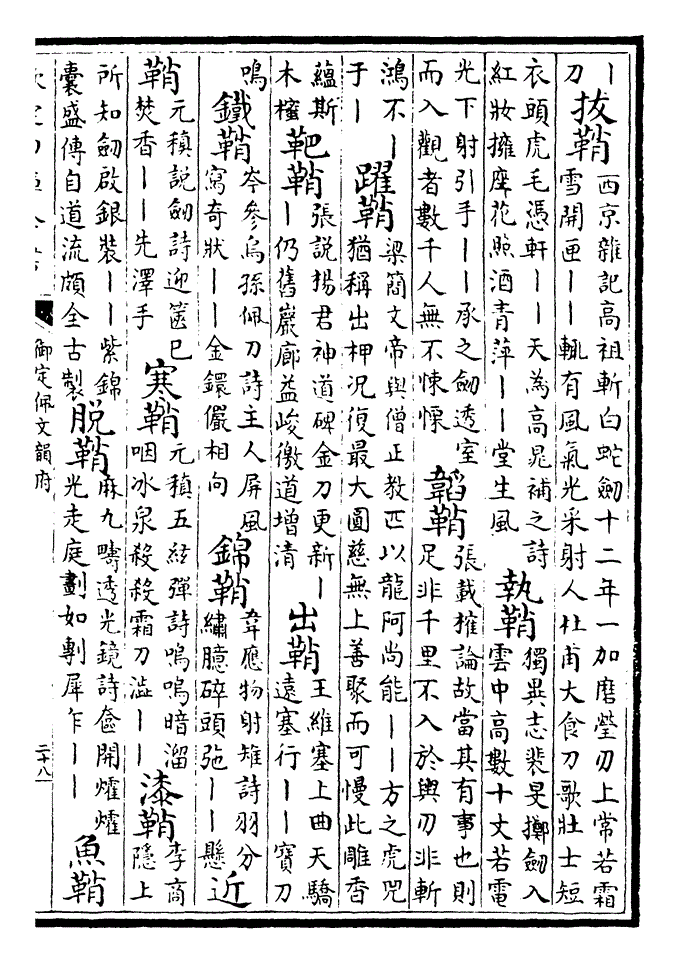 丨
刀
拔鞘
西京雜記高祖斬白蛇劍十二年一加磨瑩刃上常若霜
雪開匣丨丨輒有風氣光采射人杜甫大食刀歌壯士短
衣頭虎毛憑軒丨丨天為高晁補之詩
紅妝擁座花照酒青萍丨丨堂生風
執鞘
獨異志裴旻擲劍入
雲中高數十丈若電
光下射引手丨丨承之劍透室
而入觀者數千人無不悚慄
韜鞘
張載搉論故當其有事也則
足非千里不入於輿刃非斬
鴻不丨
于丨
躍鞘
梁簡文帝與僧正教匹以龍阿尚能丨丨方之虎兕
猶稱出柙況復最大圓慈無上善聚而可慢此雕香
蘊斯
木櫁
靶鞘
張説揚君神道碑金刀更新丨
丨仍舊巖廊益峻徼道增清
出鞘
王維塞上曲天驕
遠塞行丨丨寶刀
鳴
鐵鞘
岑參烏孫佩刀詩主人屏風
寫奇狀丨丨金鐶儼相向
錦鞘
韋應物射雉詩羽分
繡臆碎頭弛丨丨懸
近
鞘
元稹説劍詩迎篋已
焚香丨丨先澤手
寒鞘
元稹五絃彈詩嗚嗚暗溜
咽冰泉殺殺霜刀澁丨丨
漆鞘
李商
隱上
所知劍啟銀裝丨丨紫錦
囊盛傳自道流頗全古製
脱鞘
麻九疇透光鏡詩奩開爟爟
光走庭劃如剸犀乍丨丨
魚鞘
御定佩文韻府
二十八